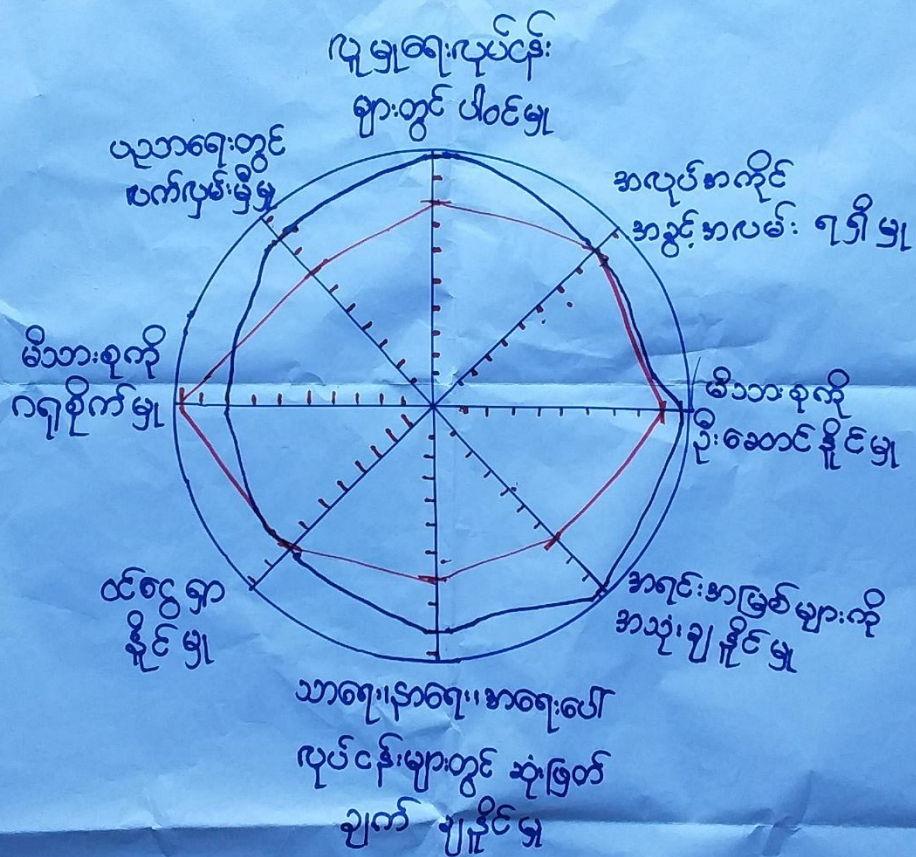 လူမှုရေးလုပ်ငန်း
များတွင် ပါဝင်မှု
အလုပ်အကိုင်
အခွင့်အလမ်း ရရှိမှု
မိသားစုကို
ဦးဆောင်နိူင်မှု
အရင်းအမြစ်များကို
အသုံးချနိူင်မှု
သာရေး၊နာရေး၊အရေးပေါ်
လုပ်ငန်းများတွင် ဆုံးဖြတ်
ချက် ချနိူင်မှု
ဝင်ငွေရှာ
နိူင်မှု
မိသားစုကို
ဂရုစိုက်မှု
ပညာရေးတွင်
လက်လှမ်းမှီမှု